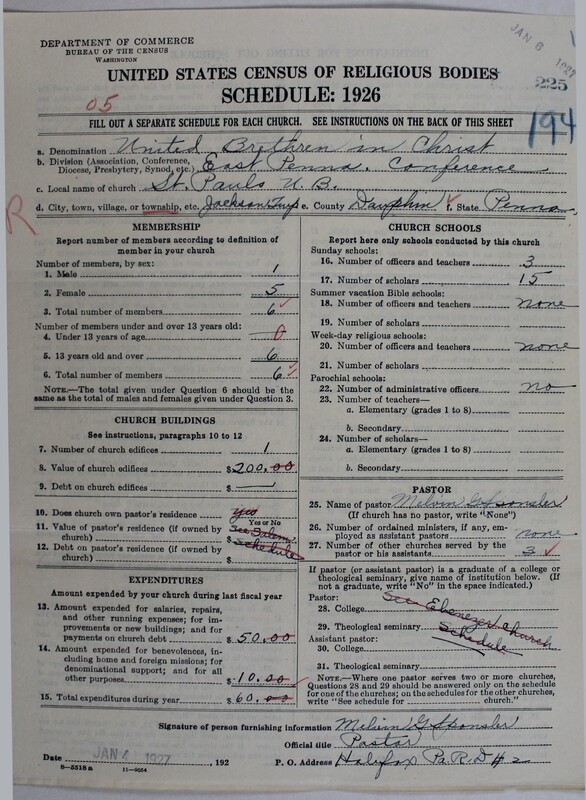 JAN 6 1927
DEPARTMENT OF COMMERCE
BUREAU OF THE CENSUS
WASHINGTON
UNITED STATES CENSUS OF RELIGIOUS BODIES
225
SCHEDULE: 1926
05
194
FILL OUT A SEPARATE SCHEDULE FOR EACH CHURCH. SEE INSTRUCTIONS ON THE BACK OF THIS SHEET
a. Denomination United Brethren in Christ
b. Division (Association, Conference, Diocese, Presbytery, Synod, etc.) East Penna. Conference
c. Local name of church St. Pauls U.B.
d. City, town, village, or township, etc. Jackson Twp e. County Dauphin f. State Penna
R
MEMBERSHIP
Report number of members according to definition of
member in your church
Number of members, by sex:
1. Male 1
2. Female 5
3. Total number of members 6
Number of members under and over 13 years old:
4. Under 13 years of age 0
5. 13 years old and over 6
6. Total number of members 6
NOTE.—The total given under Question 6 should be the
same as the total of males and females given under Question 3.
CHURCH BUILDINGS
See instructions, paragraphs 10 to 12
7. Number of church edifices 1
8. Value of church edifices $200.00
9. Debt on church edifices $
10. Does church own pastor's residence yes
Yes or No
11. Value of pastor's residence (if owned by
church) $ See Salem
12. Debt on pastor's residence (if owned by
church) $ Schedule
EXPENDITURES
Amount expended by your church during last fiscal year
13. Amount expended for salaries, repairs,
and other running expenses; for im-
provements or new buildings; and for
payments on church debt $50.00
14. Amount expended for benevolences,
including home and foreign missions; for
denominational support; and for all
other purposes $10.00
15. Total expenditures during year $60.00
CHURCH SCHOOLS
Report here only schools conducted by this church
Sunday schools:
16. Number of officers and teachers 3
17. Number of scholars 15
Summer vacation Bible schools:
18. Number of officers and teachers none
19. Number of scholars
Week-day religious schools:
20. Number of officers and teachers none
21. Number of scholars
Parochial schools:
22. Number of administrative officers no
23. Number of teachers—
a. Elementary (grades 1 to 8)
b. Secondary
24. Number of scholars—
a. Elementary (grades 1 to 8)
b. Secondary
PASTOR
25. Name of pastor Melvin G Sponsler
(If church has no pastor, write "None")
26. Number of ordained ministers, if any, em-
ployed as assistant pastors none
27. Number of other churches served by the
pastor or his assistants 3
If pastor (or assistant pastor) is a graduate of a college or
theological seminary, give name of institution below. (If
not a graduate, write "No" in the space indicated.)
Pastor:
28. College See Ebenezer Church
29. Theological seminary Schedule
Assistant pastor:
30. College
31. Theological seminary
NOTE.—Where one pastor serves two or more churches,
Questions 28 and 29 should be answered only on the schedule
for one of the churches; on the schedules for the other churches,
write "See schedule for church."
Signature of person furnishing information Melvin G Sponsler
Official title Pastor
Date JAN 4 1927, 192 P. O. Address Halifax Pa. R.D #2
8—5518 a 11—9664